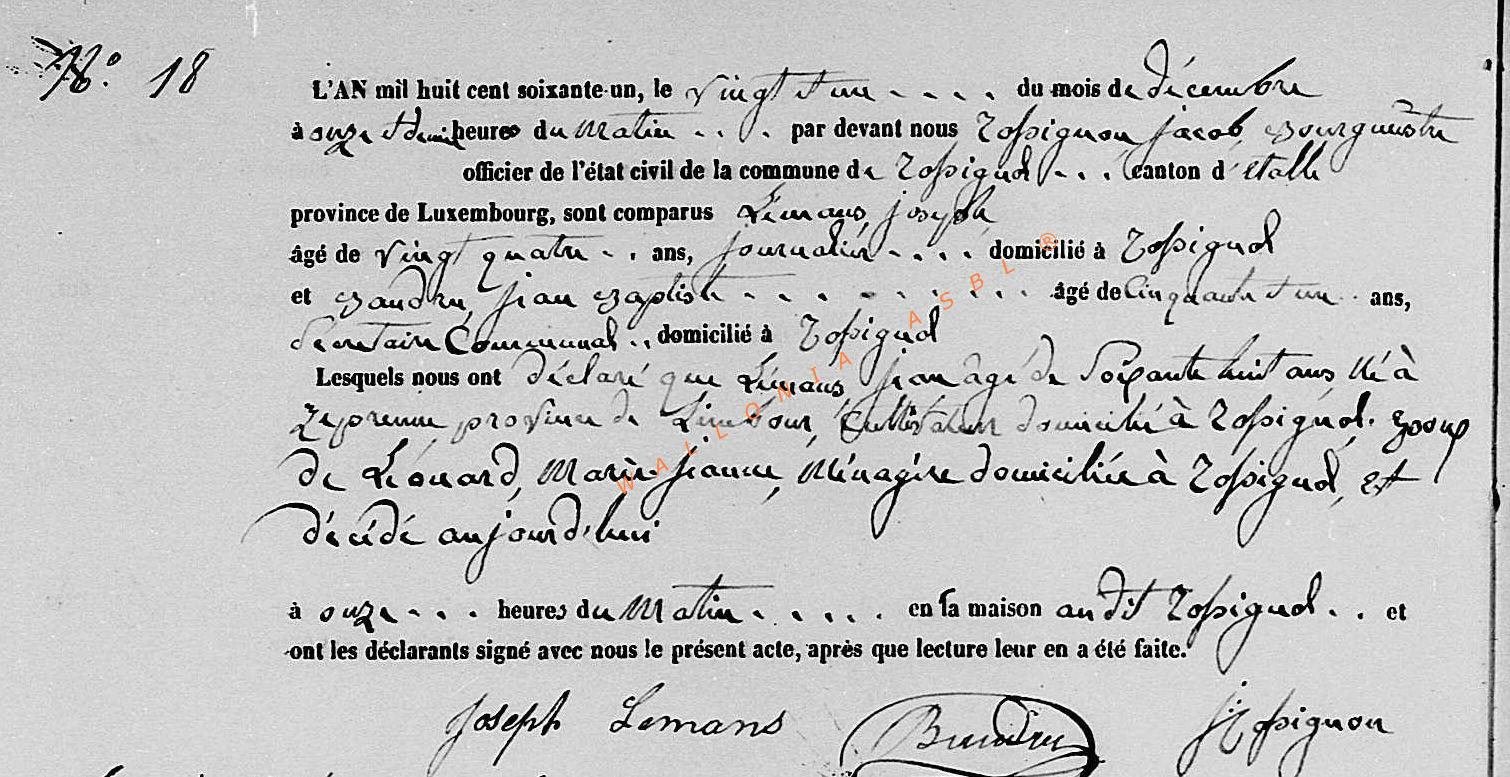 N.° 18
L'AN mil huit cent soixante-un, le vingt et un - - - - du mois de décembre
à onze et demi heures du Matin - - - par devant nous Rossignon, jacob, Bourgmestre
officier de l'état civil de la commune de Rossignol - - - canton d'étalle
province de Luxembourg, sont comparus Lémans, joseph
âgé de vingt quatre - - ans, journalier - - - - domicilié à Rossignol
et Baudru, jean Baptiste - - - - - - - - - âgé de Cinquante et un - - ans,
Secretaire Communal - - domicilié à Rossignol
Lesquels nous ont déclaré que Lémans, jean agé de Soixante huit ans, né à
province de Limbour, Cultivateur domicilié à Rossignol. Epoux
de Léonard, Marie-jeanne, Ménagère domiciliée à Rossignol, est
décédé aujourd'hui
à onze - - - heures du Matin - - - - - en sa maison audit Rossignol - - et
ont les déclarants signé avec nous le présent acte, après que lecture leur en a été faite.
joseph Lemans Baudru J Rossignon
WALLONIA ASBL ®